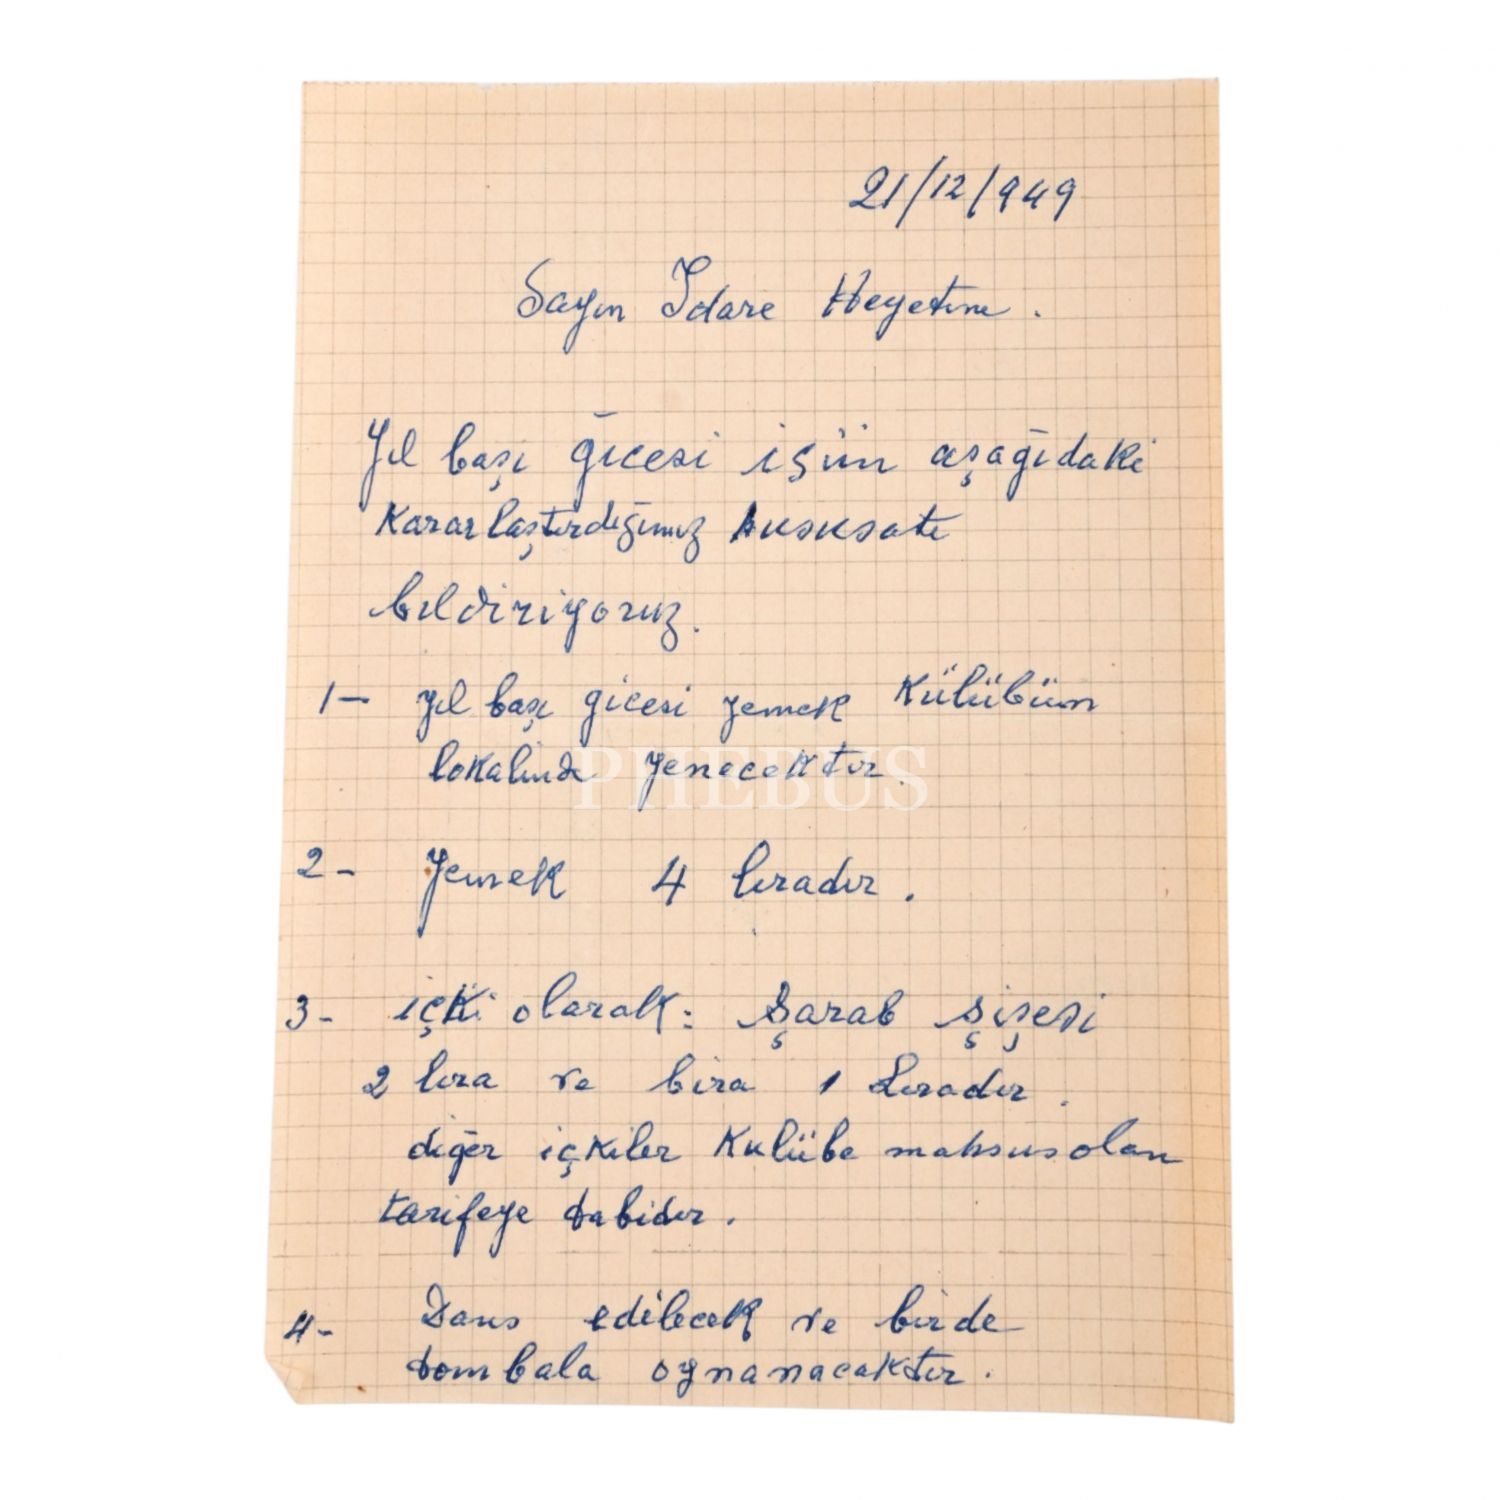 21/12/949
Sayın İdare Heyetine.
Yıl başı ğicesi işün aşağıdaki
Kararlaştırdığımız hususatı
bildiriyoruz.
1- Yıl başı gicesi yemek Külübün
lokalinde yenecektir.
PHEBUS
2- Yemek 4 liradır.
3- içki olarak: Şarab şişesi
2 lira ve bira 1 Liradır.
diğer içkiler Kulübe mahsus olan
tarifeye tabidir.
4- Dans edilecek ve birde
tombala oynanacaktır.